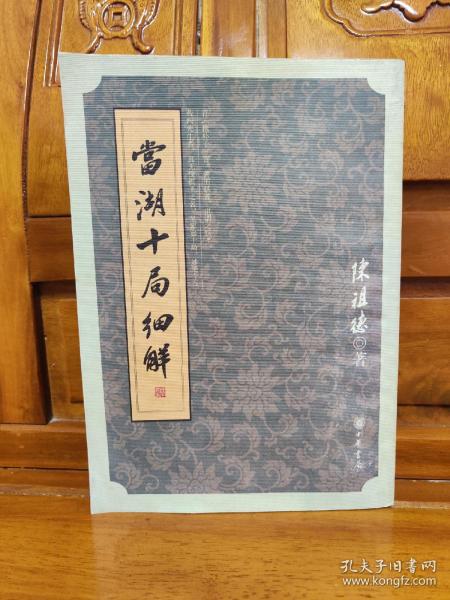 當湖十局細解
陳祖德
著
中華書局
孔夫子旧书网
www.kongfz.com